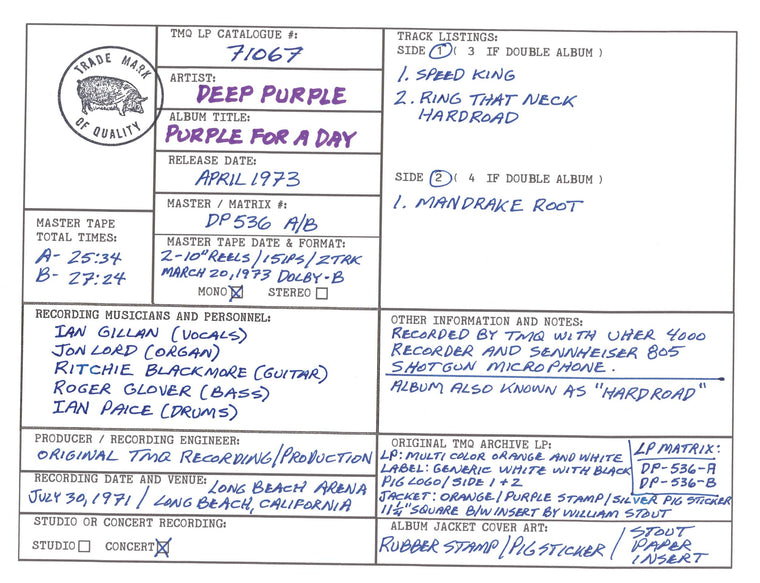 TRADE MARK
OF QUALITY
TMQ LP CATALOGUE #:
71067
ARTIST:
DEEP PURPLE
ALBUM TITLE:
PURPLE FOR A DAY
RELEASE DATE:
APRIL 1973
MASTER / MATRIX #:
DP 536 A/B
MASTER TAPE DATE & FORMAT:
2-10" REELS/15IPS/2TRK
MARCH 20, 1973 DOLBY-B
MONO STEREO
MASTER TAPE
TOTAL TIMES:
A- 25:34
B- 27:24
TRACK LISTINGS:
SIDE 1 ( 3 IF DOUBLE ALBUM )
1. SPEED KING
2. RING THAT NECK
HARDROAD
SIDE 2 ( 4 IF DOUBLE ALBUM )
1. MANDRAKE ROOT
RECORDING MUSICIANS AND PERSONNEL:
IAN GILLAN (VOCALS)
JON LORD (ORGAN)
RITCHIE BLACKMORE (GUITAR)
ROGER GLOVER (BASS)
IAN PAICE (DRUMS)
OTHER INFORMATION AND NOTES:
RECORDED BY TMQ WITH UHER 4000
RECORDER AND SENNHEISER 805
SHOTGUN MICROPHONE.
ALBUM ALSO KNOWN AS "HARDROAD"
PRODUCER / RECORDING ENGINEER:
ORIGINAL TMQ RECORDING/PRODUCTION
RECORDING DATE AND VENUE: LONG BEACH ARENA
JULY 30, 1971 / LONG BEACH, CALIFORNIA
STUDIO OR CONCERT RECORDING:
STUDIO CONCERT
ORIGINAL TMQ ARCHIVE LP:
LP: MULTI COLOR ORANGE AND WHITE
LABEL: GENERIC WHITE WITH BLACK
PIG LOGO/SIDE 1+2
JACKET: ORANGE/PURPLE STAMP/SILVER PIG STICKER
11¼" SQUARE B/W INSERT BY WILLIAM STOUT
LP MATRIX:
DP-536-A
DP-536-B
ALBUM JACKET COVER ART:
RUBBER STAMP/PIG STICKER / STOUT
PAPER
INSERT